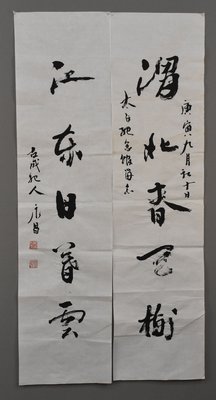 渭北春天樹
庚寅九月初十日
太白紀念館留念
江東日暮雲